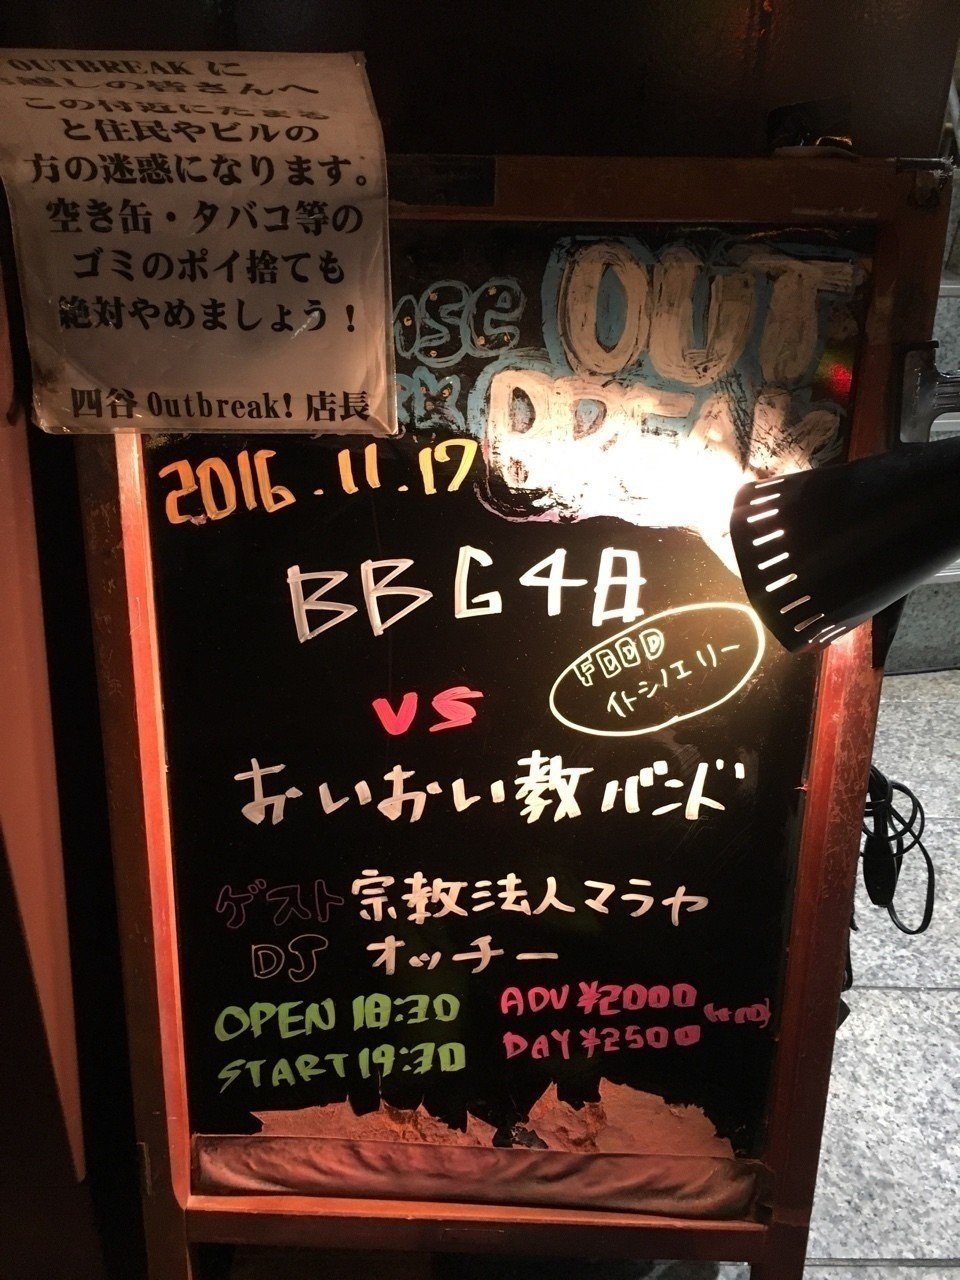 OUTBREAK に
お越しの皆さんへ
この付近にたまる
と住民やビルの
方の迷惑になります。
空き缶・タバコ等の
ゴミのポイ捨ても
絶対やめましょう！
四谷 Outbreak! 店長
OUT
BREAK
2016.11.17
BBG4日
FOOD
イトシノエリー
VS
おいおい教バンド
ゲスト 宗教法人マラヤ
DJ オッチー
OPEN 18:30
START 19:30
ADV ¥2000
DAY ¥2500
(+1D)